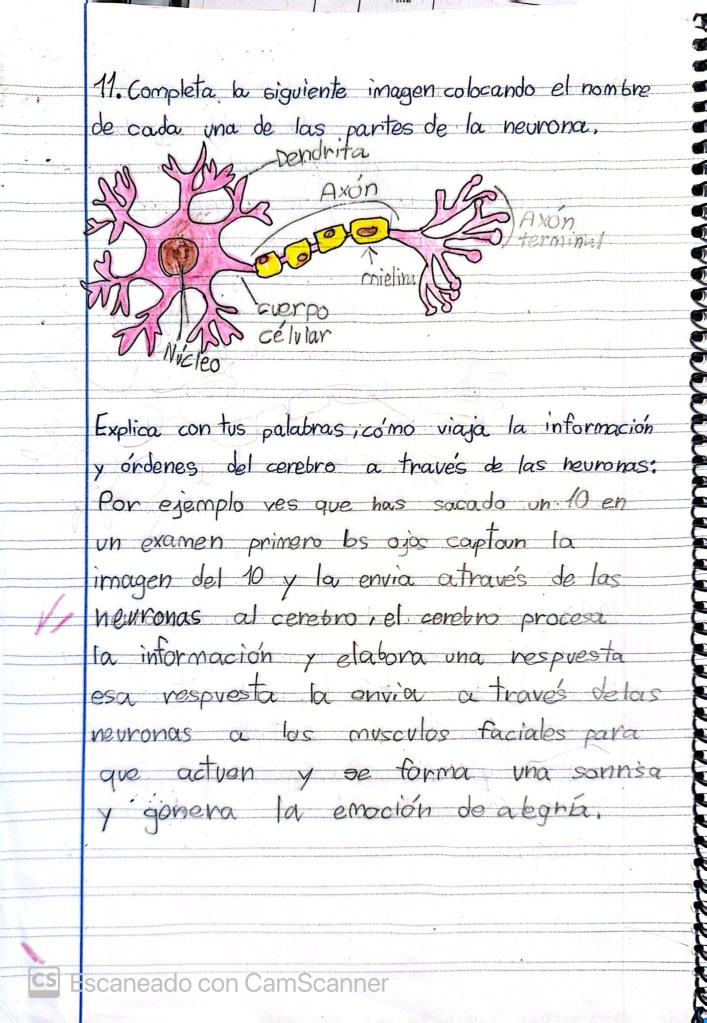 11. Completa la siguiente imagen colocando el nombre
de cada una de las partes de la neurona.
Dendrita
Axón
Axón
terminal
mielina
cuerpo
célular
Núcleo
Explica con tus palabras, cómo viaja la información
y órdenes del cerebro a través de las neuronas:
Por ejemplo ves que has sacado un 10 en
un examen primero los ojos captan la
imagen del 10 y la envia através de las
neuronas al cerebro, el cerebro procesa
la información y elabora una respuesta
esa respuesta la envia a través de las
neuronas a los musculos faciales para
que actuen y se forma una sonrisa
y genera la emoción de alegría.
CS Escaneado con CamScanner